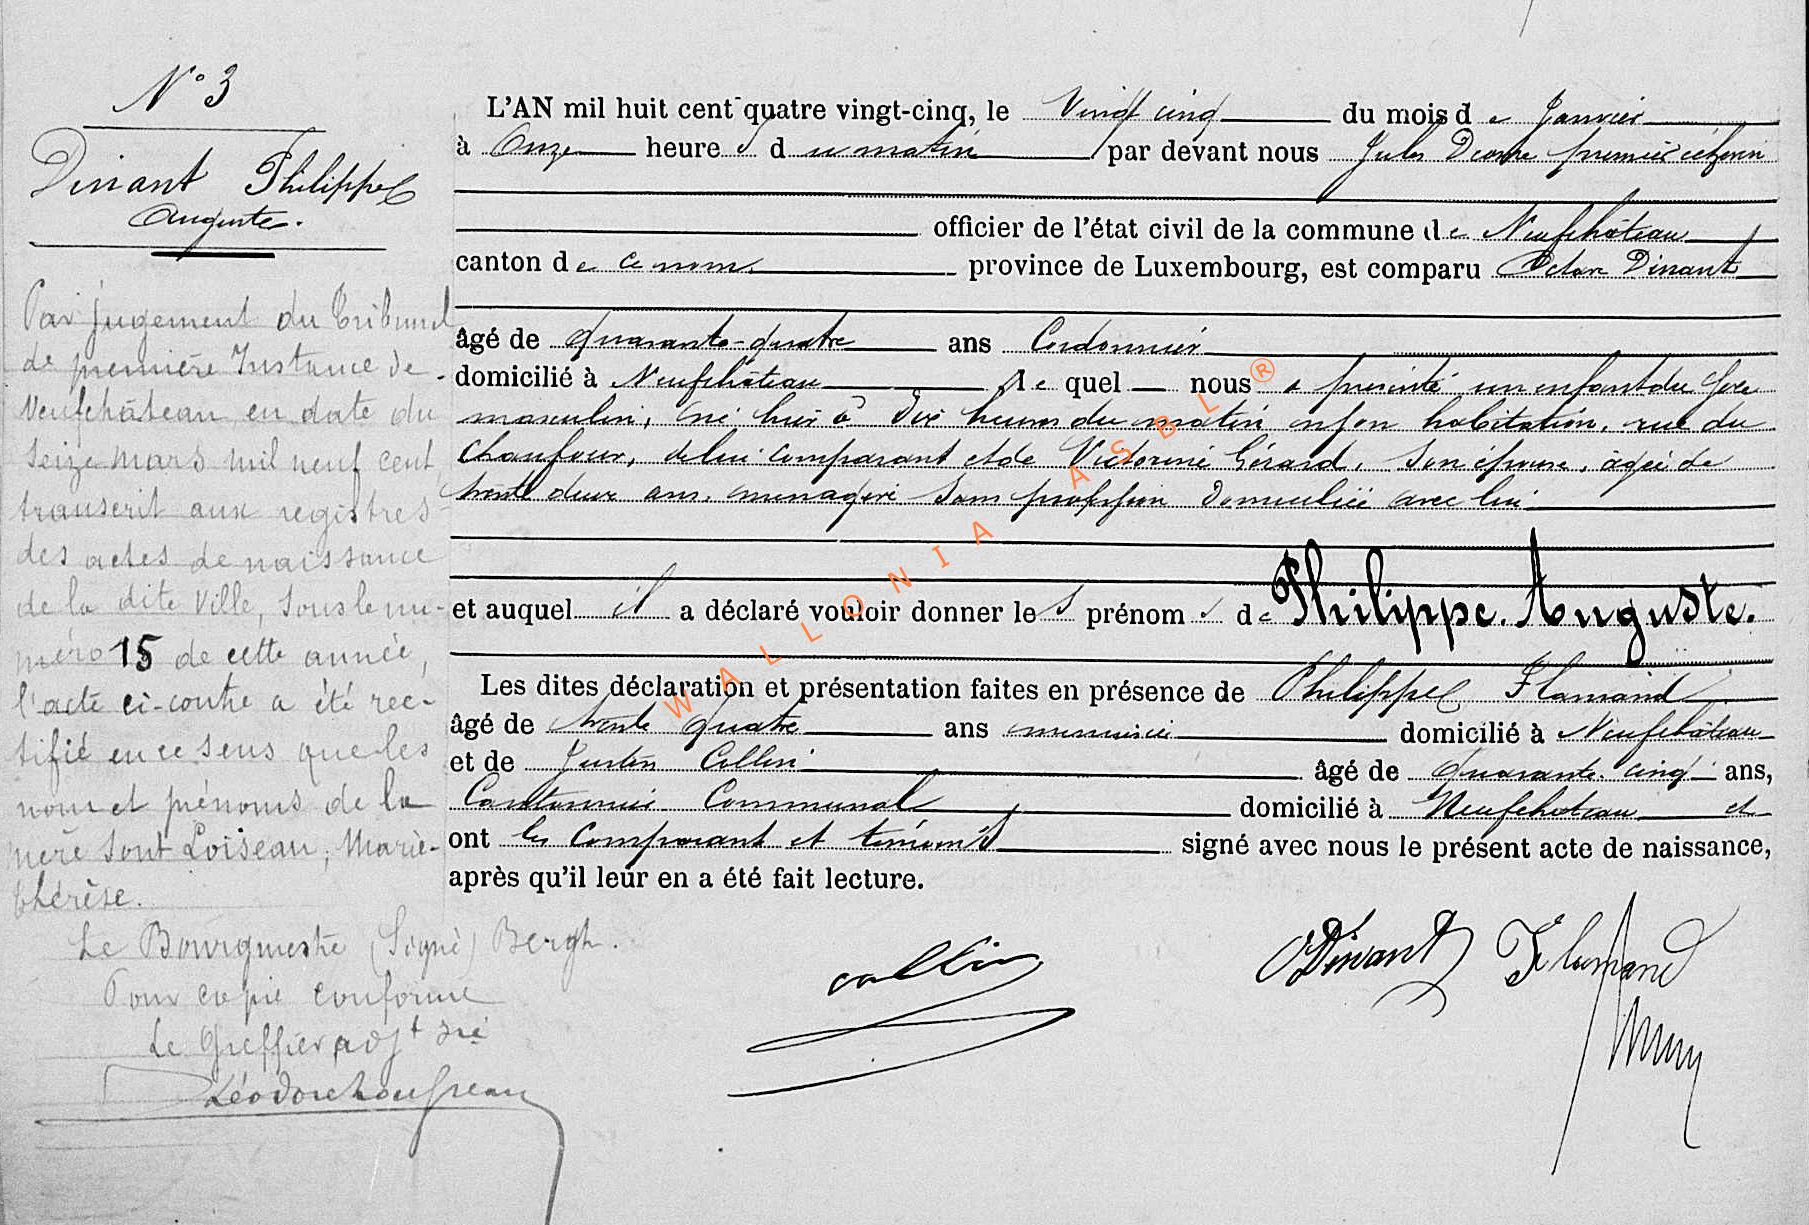 N° 3
Dinant Philippe
Auguste.
Par jugement du Tribunal
de première Instance de
Neufchâteau en date du
seize mars mil neuf cent
transcrit aux registres
des actes de naissance
de la dite Ville, sous le nu-
méro 15 de cette année,
l'acte ci-contre a été rec-
tifié en ce sens que les
nom et prénoms de la
mère sont Loiseau, Marie-
thérèse.
Le Bourgmestre (Signé) Bergh.
Pour copie conforme
Le Greffier adjt
L'AN mil huit cent quatre vingt-cinq, le Vingt cinq du mois de Janvier
à Onze heures du matin par devant nous Jules premier échevin
officier de l'état civil de la commune de Neufchâteau
canton de ce nom. province de Luxembourg, est comparu Octave Dinant
âgé de quarante-quatre ans Cordonnier
domicilié à Neufchâteau le quel nous a présenté un enfant du sexe
masculin, né hier à dix heures du matin en son habitation, rue du
Chaufour, de lui comparant et de Victorine Gérard, son épouse, âgée de
trente deux ans, ménagère sans profession domiciliée avec lui
et auquel il a déclaré vouloir donner les prénoms de Philippe. Auguste.
Les dites déclaration et présentation faites en présence de Philippe Flamand
âgé de trente quatre ans menuisier domicilié à Neufchâteau
et de Justin Collin âgé de quarante-cinq ans,
Cantonnier Communal domicilié à Neufchateau et
ont les comparant et témoins signé avec nous le présent acte de naissance,
après qu'il leur en a été fait lecture.
Collin ODinant Flamand
WALLONIA ASBL®